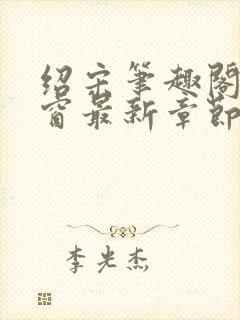 绍宋笔趣阁
窗最新章节
李光杰